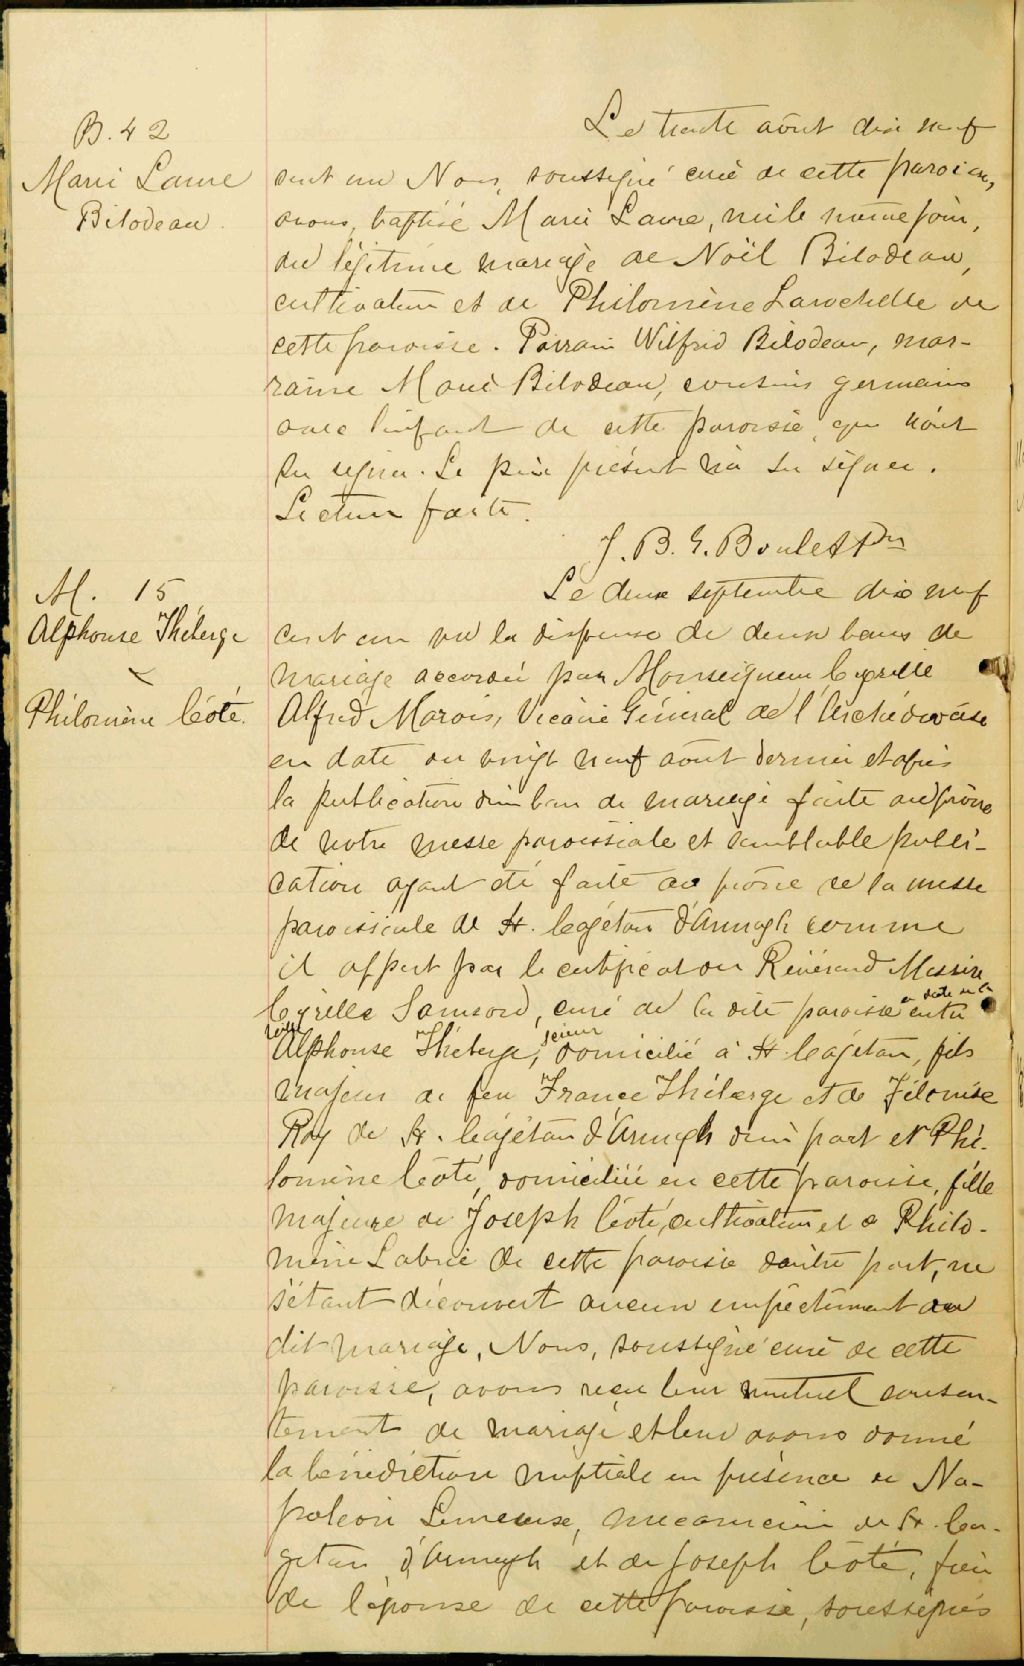 B. 42
Marie Laure
Bilodeau
Le trente août dix neuf
cent un Nous, soussigné curé de cette paroisse,
avons baptisé Marie Laure, née le même jour,
du légitime mariage de Noël Bilodeau,
cultivateur et de Philomène Larochelle de
cette paroisse. Parrain Wilfrid Bilodeau, mar-
raine Marie Bilodeau, cousins germains
avec l'enfant de cette paroisse, qui n'ont
su signer. Le père présent n'a su signer.
Lecture faite.
J. B. G. Boulet Ptre
M. 15
Alphonse Théberge
&
Philomène Côté.
Le deux septembre dix neuf
cent un vu la dispense de deux bans de
mariage accordée par Monseigneur Cyrille
Alfred Marois, Vicaire Général de l'Archidiocèse
en date du vingt neuf août dernier et après
la publication d'un ban de mariage faite au prône
de notre messe paroissiale et semblable publi-
cation ayant été faite au prône de la messe
paroissiale de St. Cajétan d'Armagh comme
il appert par le certificat du Révérend Messire
Cyrille Samson, curé de la dite paroisse en date de la entre
Alphonse Théberge, scieur domicilié à St. Cajétan, fils
majeur de feu France Théberge et de Félonise
Roy de St. Cajétan d'Armagh d'un part et Phi-
lomène Côté, domiciliée en cette paroisse, fille
majeure de Joseph Côté, cultivateur et de Philo-
mène Labrie de cette paroisse d'autre part, ne
s'étant découvert aucun empêchement au
dit mariage, Nous, soussigné curé de cette
paroisse, avons reçu leur mutuel consen-
tement de mariage et leur avons donné
la bénédiction nuptiale en présence de Na-
poléon Lemieux, mécanicien de St. Ca-
jetan d'Armagh et de Joseph Côté, frère
de l'épouse de cette paroisse, soussignés